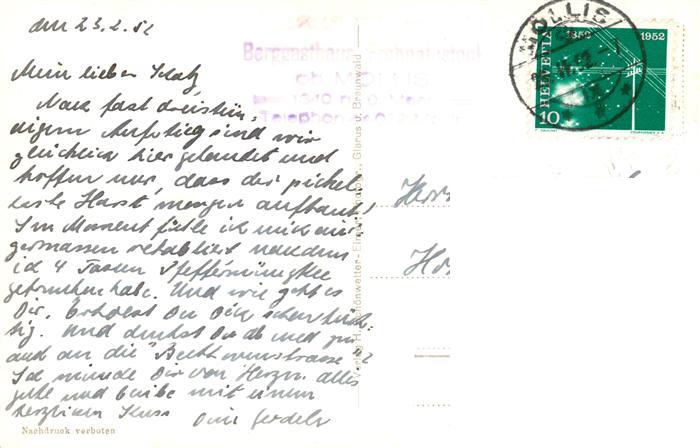 den 23.2.52
Mein lieber Schatz
Nach fast dreistün-
digem Aufstieg sind wir
glücklich hier gelandet und
hoffen nur, dass der pickel-
harte Harst morgen auftaut!
Im Moment fühle ich mich eini
germassen retabliert nachdem
ich 4 Tassen Pfeffermünztee
getrunken habe. Und wie geht es
Dir. Erholst Du Dich schon
tig. Und denkst Du ab und zu
auch an die Beethovenstrasse?
Ich wünsche Dir von Herzen alles
gute und bleibe mit einem
herzlichen Kuss Dein
Nachdruck verboten
Berggasthaus
ob. MOLLIS
Telephon
Glarus u. Braunwald
MOLLIS
HELVETIA
1852 1952
10
Herr